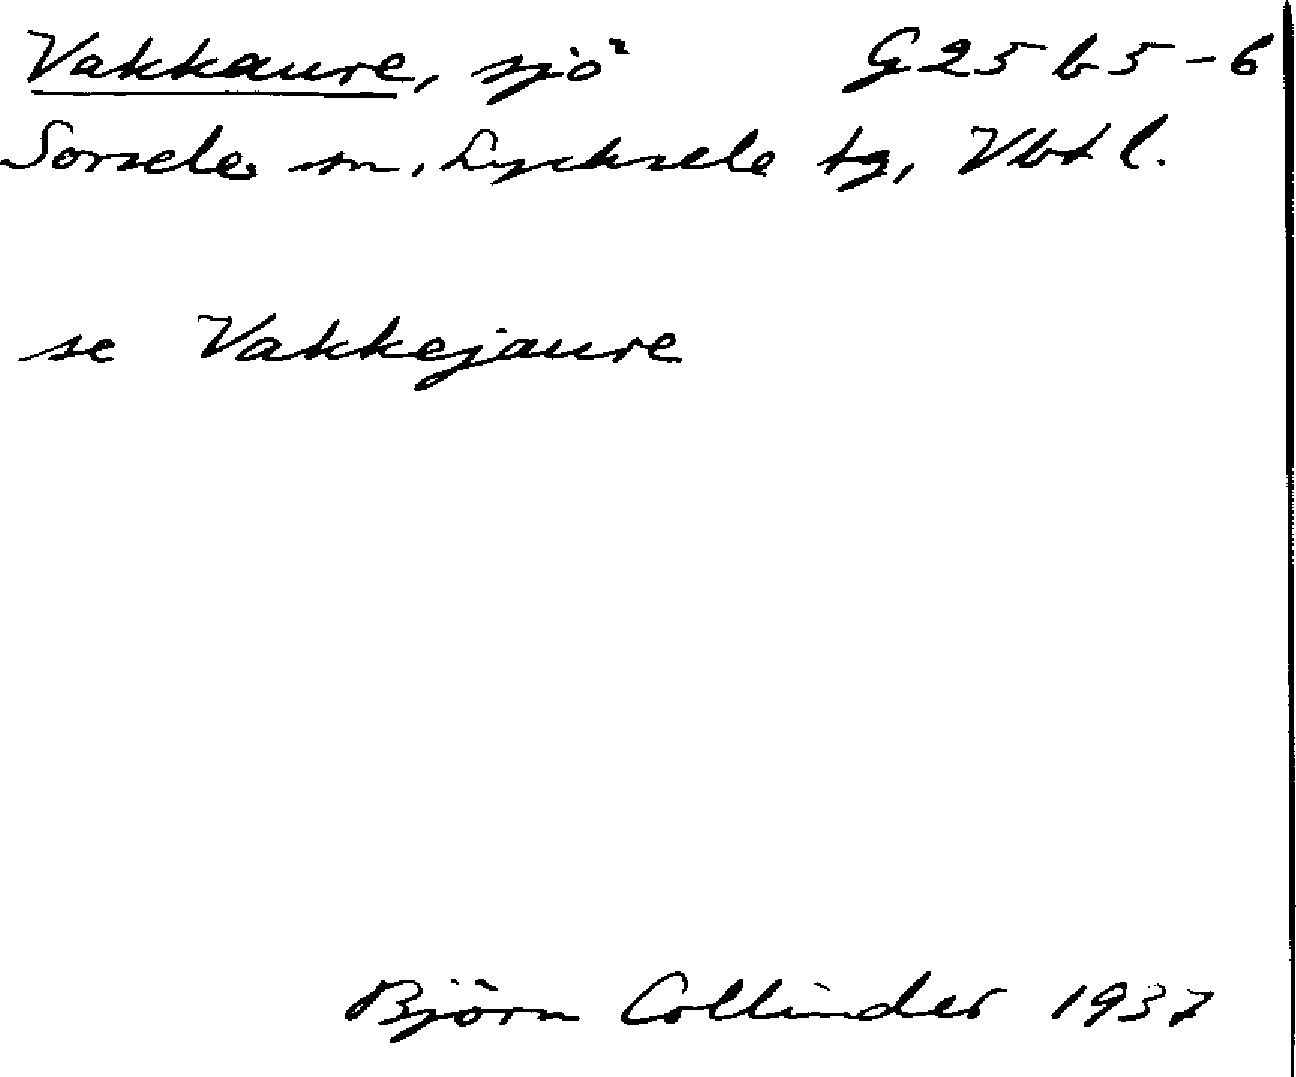 Vakkaure, sjö G25b5-6
Sorsele sn, Lycksele tg, Vbtl.
se Vakkejaure
Björn Collinder 1937